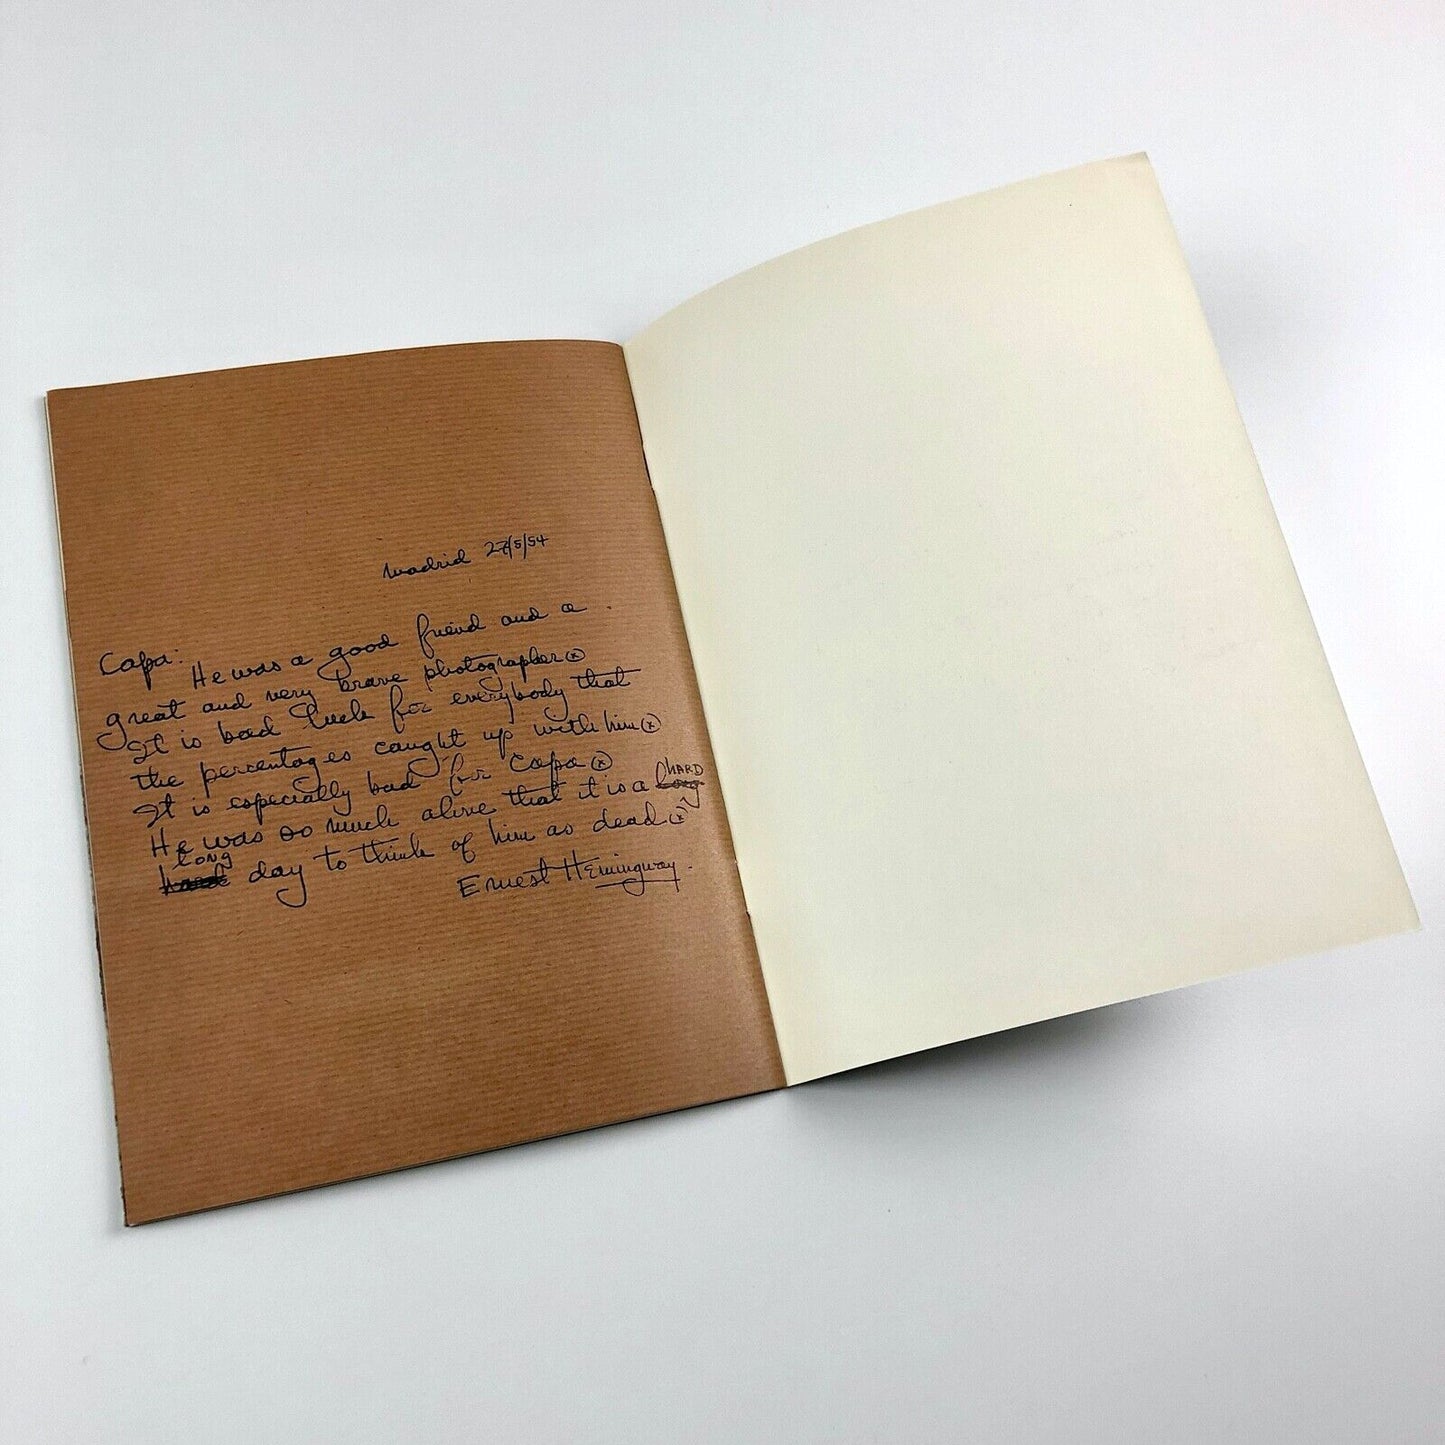 Madrid 27/5/54
Capa:
He was a good friend and a
great and very brave photographer ⓧ
It is bad luck for everybody that
the percentages caught up with him ⓧ
It is especially bad for Capa ⓧ
He was so much alive that it is a long HARD
hard long day to think of him as dead ⓧ
Ernest Hemingway.